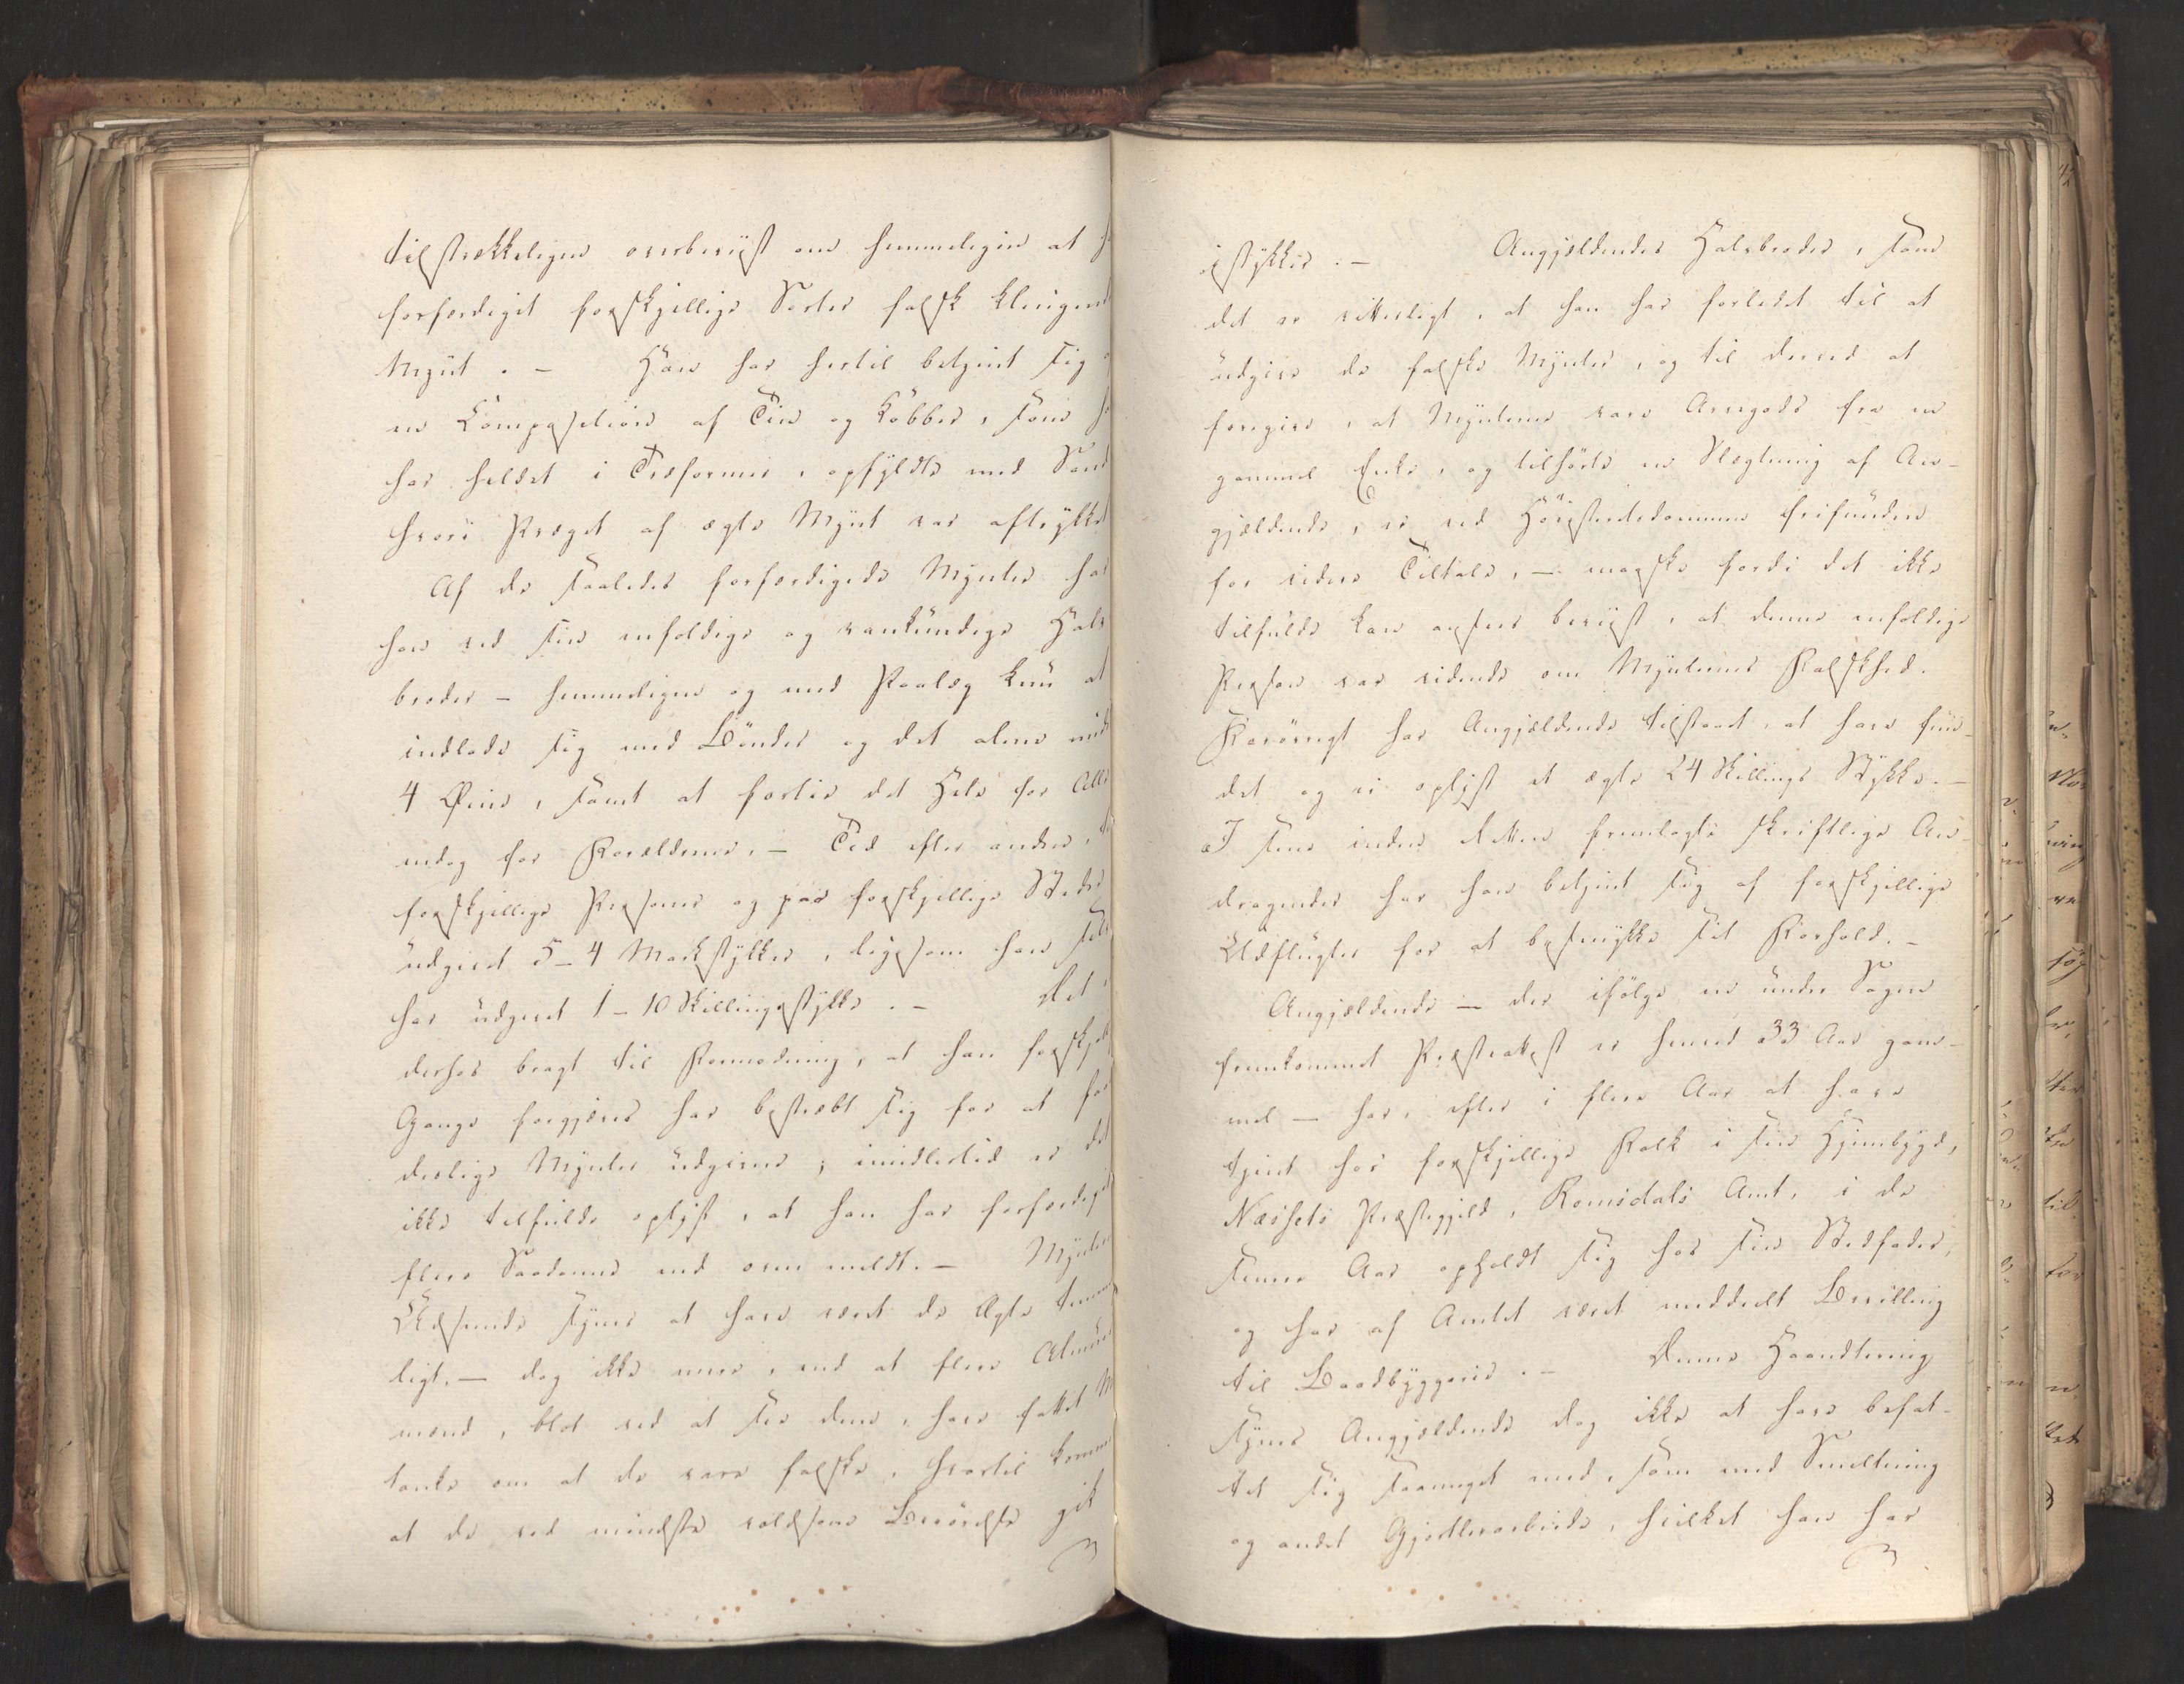 tilstrækkeligen overbeviist om hemmeligen at
forfærdiget forskjellige Sorter falsk klingend
Mynt. – Han har hertil betjent sig
en Composition af Tin og Kobber, som
har heldet i Træformer, opfyldte med Sand
hvori Præget af ægte Mynt var aftrykket
Af de saaledes forfærdigede Mynter har
han ved sin enfoldige og vankundige Halv
broder – hemmeligen og med Paalæg kun at
indlade sig med Bönder og det alene under
4 Øine, samt at fortie det Hele for Alle
endog for Forældrene, – Tid efter anden,
forskjellige Personer og paa forskjellige Steder
udgivet 5–4 Markstykker, ligesom han selv
har udgivet 1–10 Skillingsstykke. – Det
derhos bragt til Formodning, at han forskjel
Gange forgjæves har bestræbt sig for at faae
deslige Mynter udgivne; imidlertid er det
ikke tilfulde oplyst, at han har forfærdiget
flere Saadanne end oven meldt. – Mynter
Udseende synes at have været de Ægte temme
ligt. – dog ikke mere, end at flere Almue
mænd, blot ved at see dem, have fattet
tanke om at de vare falske, hvortil kommer
at de ved mindste voldsom Berörelse gik
istykker. – Angjældendes Halvbroder, som
det er vitterligt, at han har forledet til at
udgive de falske Mynter, og til derved at
foregive, at Mynterne vare Arvegods fra en
gammel Enke, og tilhørte en Slægtning af An-
gjældende, er ved Høiesteretsdommen frifunden
for videre Tiltale, – maaske fordi det ikke
tilfulde kan ansees beviist, at denne enfoldige
Person var vidende om Mynternes Falskhed.
Forövrigt har Angjældende tilstaaet, at have fun-
det og ei oplyst et ægte 24 Skillings Stykke. –
I sine inden Retten fremlagte skriftlige An-
dragender har han betjent sig af forskjellige
Udflugter for at besmykke sit Forhold. –
Angjældende – der ifölge en under Sagen
fremkommet Præsteattest er henved 33 Aar gam-
mel – har, efter i flere Aar at have
tjent hos forskjellige Folk i sin Hjembygd,
Næssets Præstegjeld, Romsdals Amt, i de
senere Aar opholdt sig hos sin Stedfader,
og har af Amtet været meddeelt Bevilling
til Baadbyggerie. – Denne Haandtering
synes Angjældende dog ikke at have befat-
tet sig saameget med, som med Smeltning
og andet Gjörtlerarbeide, hvilket han har